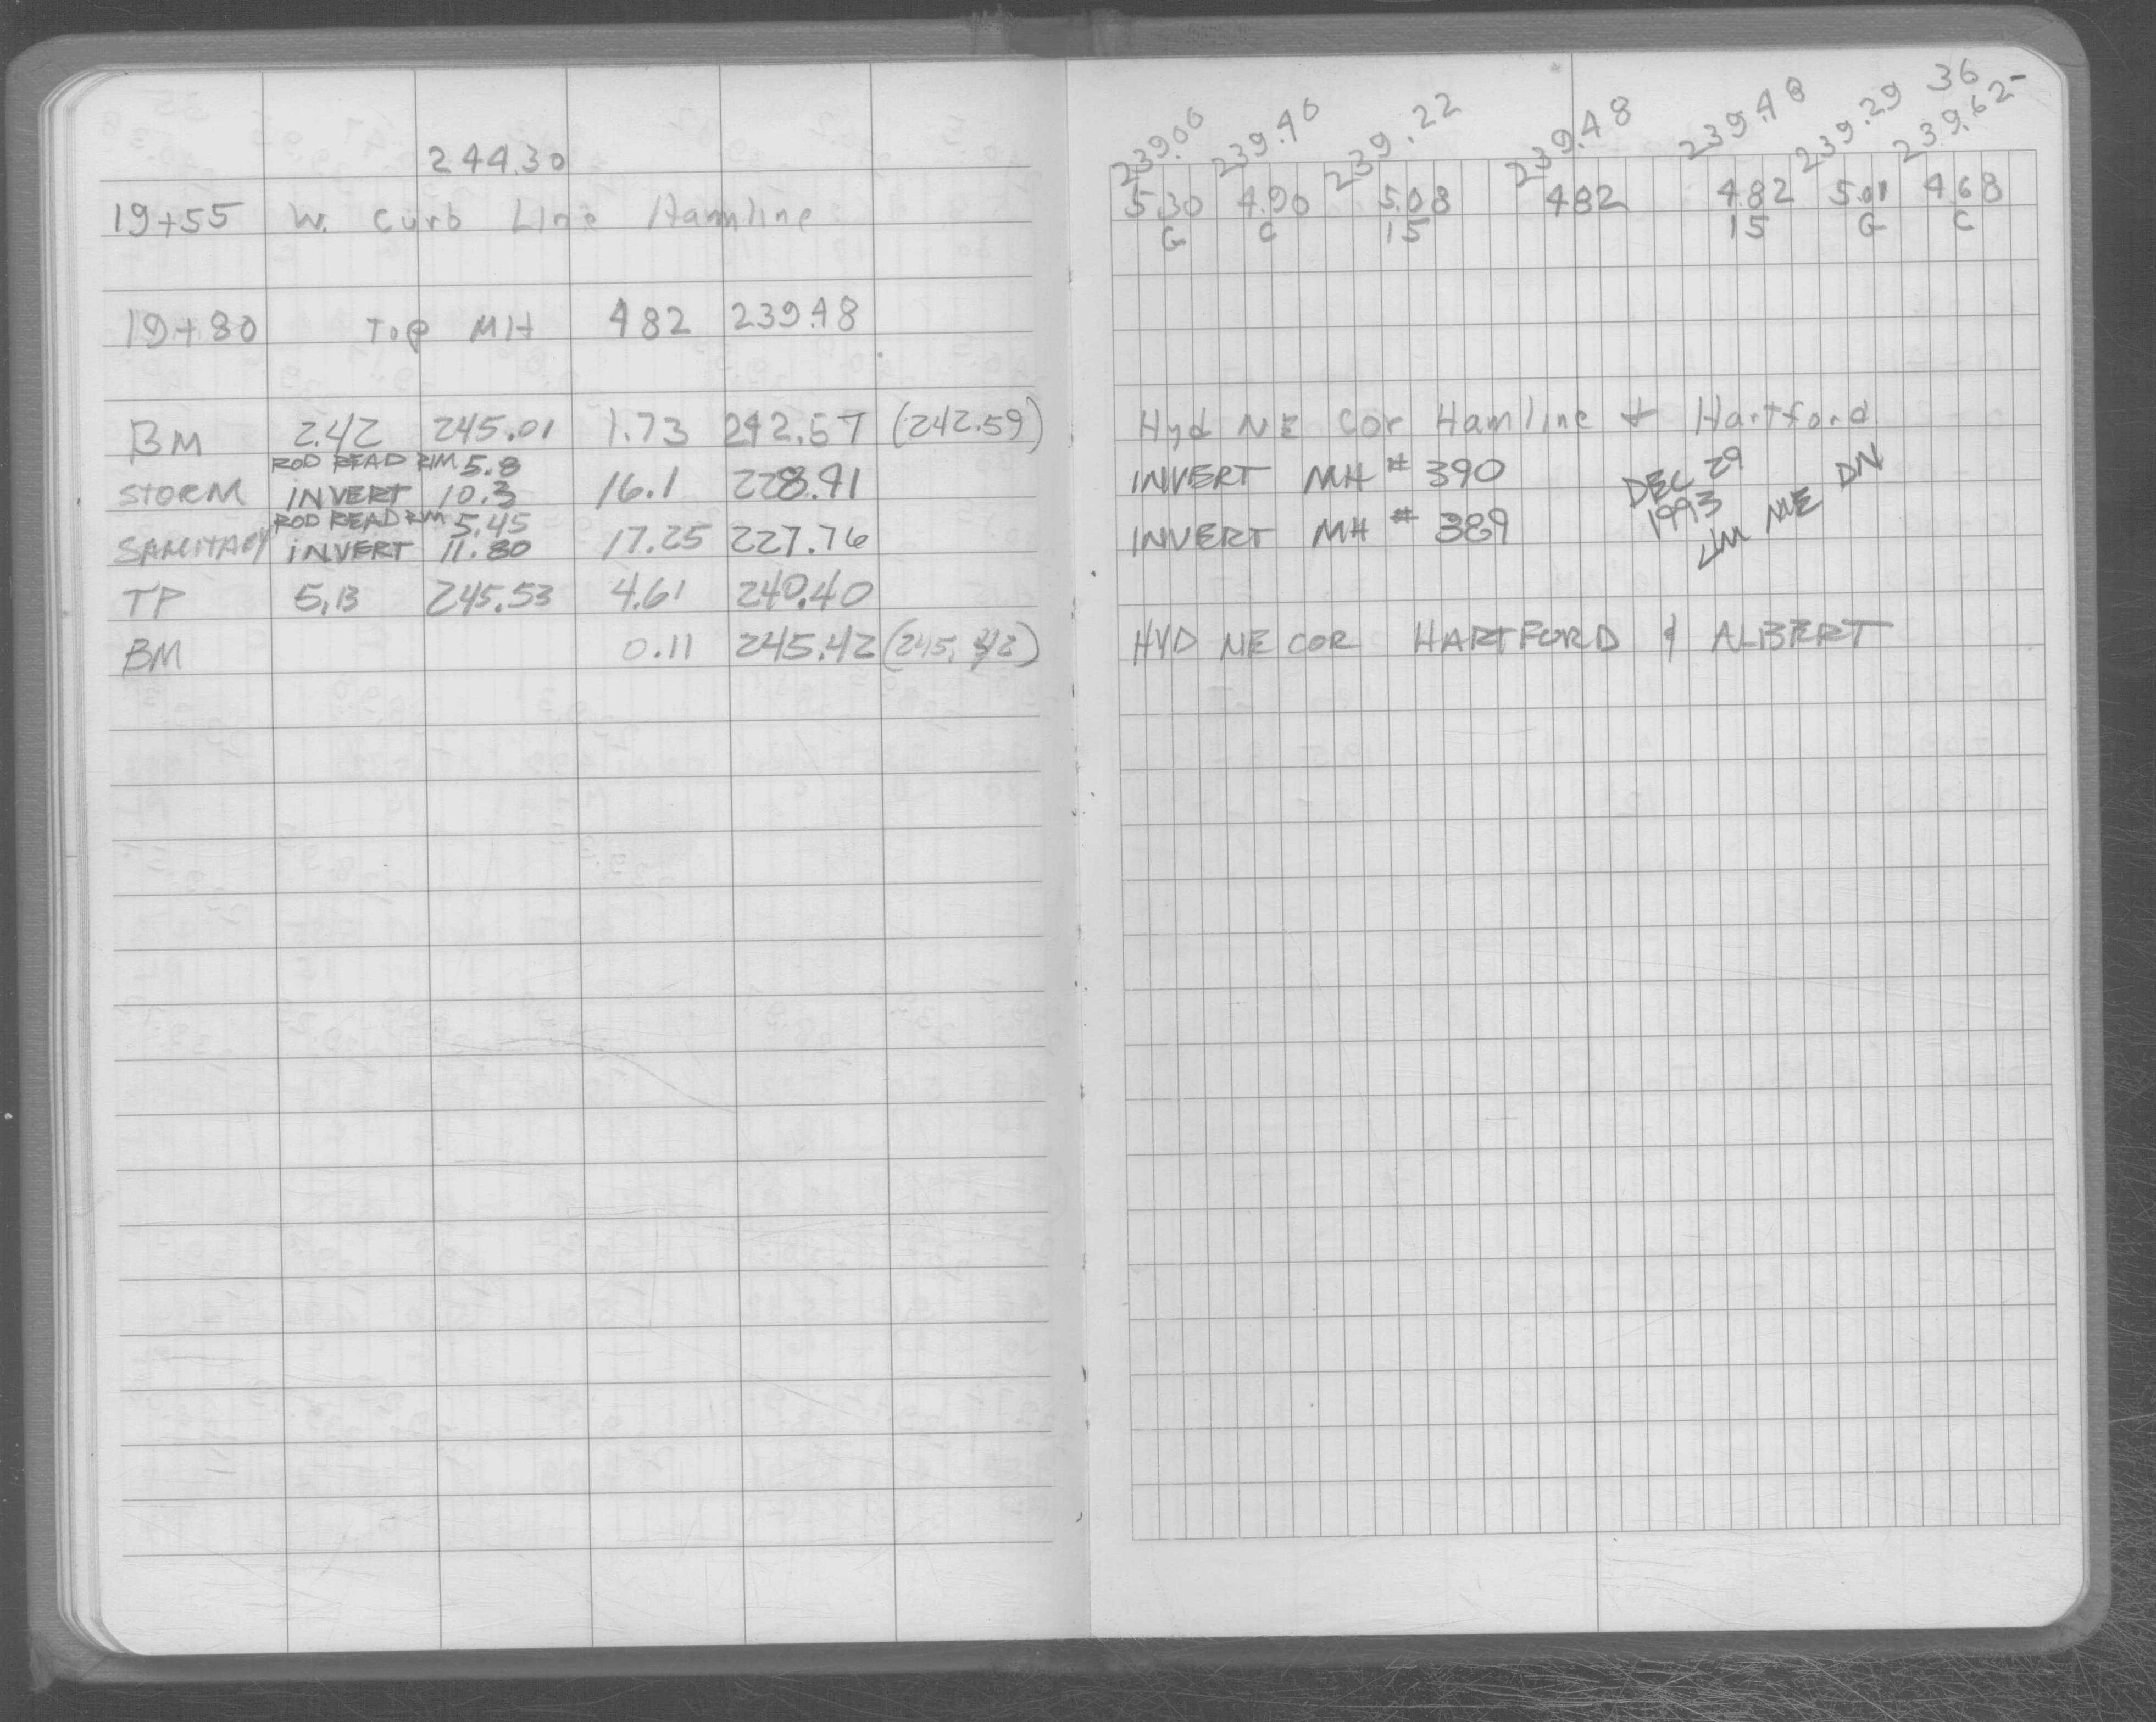 36
239.00 239.40 239.22 239.48 239.48 239.29 239.62-
244.30
5.30 4.90 5.08 4.82 4.82 5.01 4.68
19+55 W. Curb Line Hamline
G C 15 15 G C
19+80 Top MH 4.82 239.48
BM 2.42 245.01 1.73 242.57 (242.59) Hyd NE Cor Hamline & Hartford
ROD READ RIM 5.8
STORM INVERT 10.3 16.1 228.91 INVERT MH # 390 DEC 29
ROD READ RIM 5.45
SANITARY INVERT 11.80 17.25 227.76 INVERT MH # 389 1993
JM ME DN
TP 5.13 245.53 4.61 240.40
BM 0.11 245.42 HYD NE COR HARTFORD & ALBERT